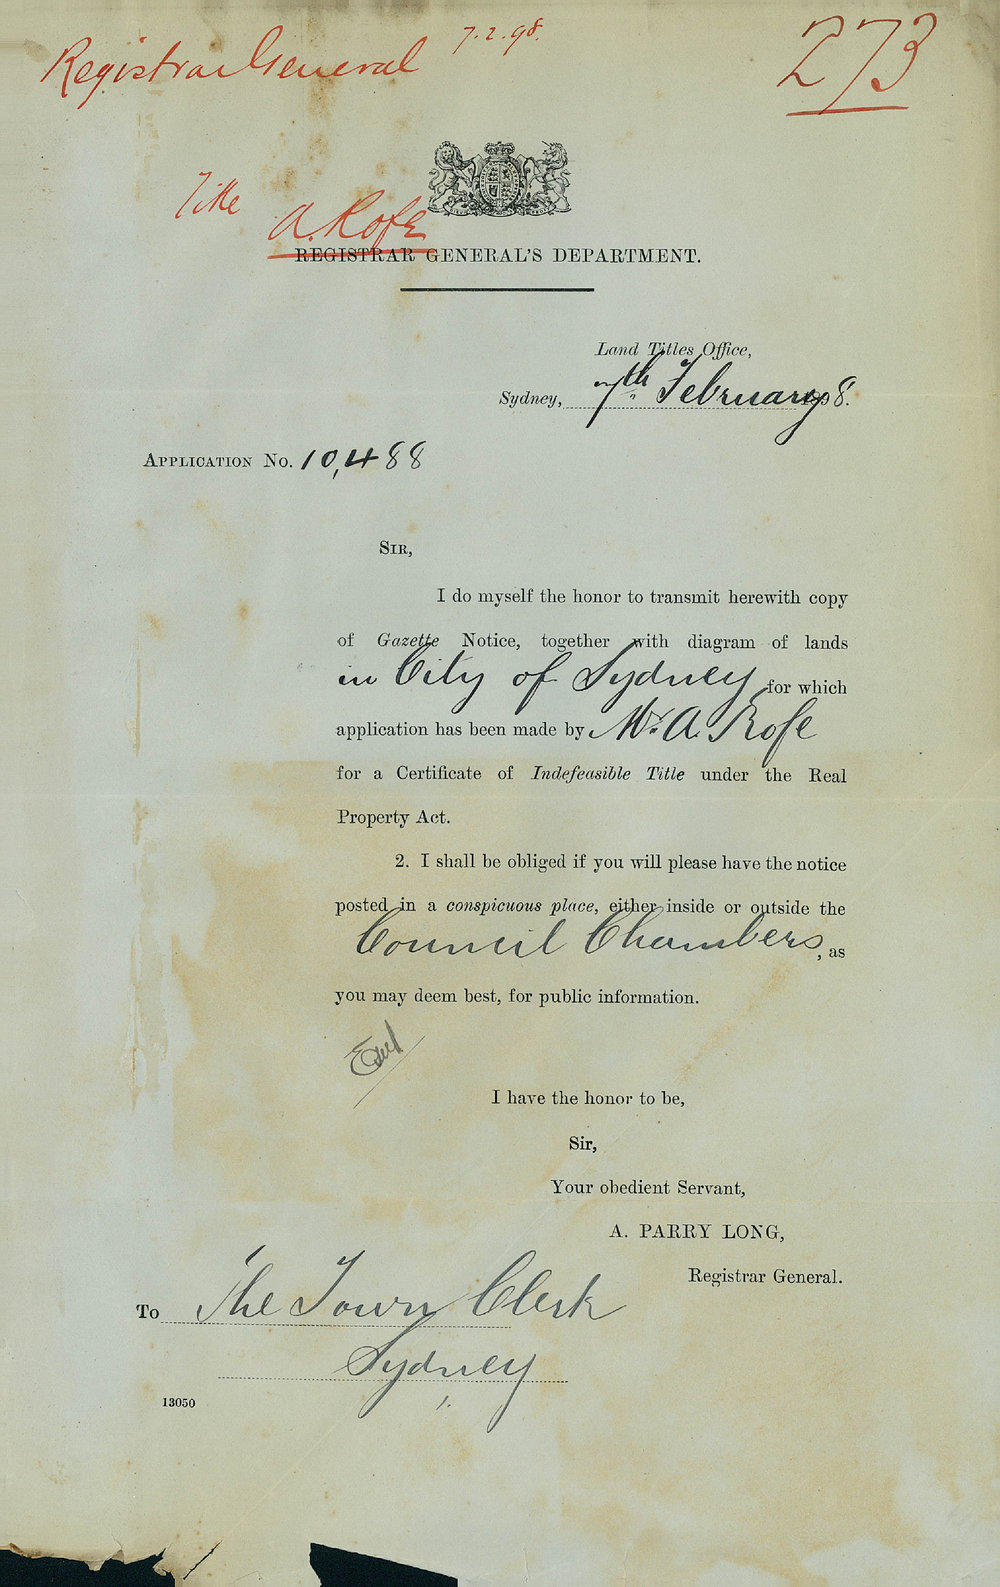 Registrar General 7.2.98.
273
Title A. Rofe
REGISTRAR GENERAL'S DEPARTMENT.
Land Titles Office,
Sydney, 7th February 1898.
APPLICATION No. 10,488
SIR,
I do myself the honor to transmit herewith copy
of Gazette Notice, together with diagram of lands
in City of Sydney for which
application has been made by Mr. A. Rofe
for a Certificate of Indefeasible Title under the Real
Property Act.
2. I shall be obliged if you will please have the notice
posted in a conspicuous place, either inside or outside the
Council Chambers, as
you may deem best, for public information.
I have the honor to be,
Sir,
Your obedient Servant,
A. PARRY LONG,
Registrar General.
To The Town Clerk
Sydney
13050